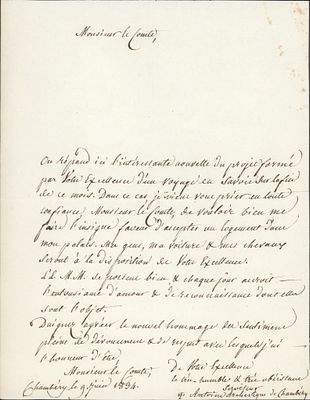 Monsieur le Comte,
On répand ici l'intéressante nouvelle du projet formé
par Votre Excellence d'un voyage en Savoie sur la fin
de ce mois. Dans ce cas, je viens vous prier en toute
confiance, Monsieur le Comte, de vouloir bien me
faire l'insigne faveur d'accepter un logement dans
mon palais. Mes gens, ma voiture & mes chevaux
seront à la disposition de Votre Excellence.
LL. MM. se portent bien, & chaque jour accroit
l'entousiasme d'amour & de reconnaissance dont elles
sont l'objet.
Daignez agréer le nouvel hommage des sentimens
pleins de dévouement & de respect avec lesquels j'ai
l'honneur d'être,
Monsieur le Comte,
De Votre Excellence
Chambéry le 9 juin 1834.
le très humble & très obéissant
serviteur
Antoine Archevêque de Chambéry